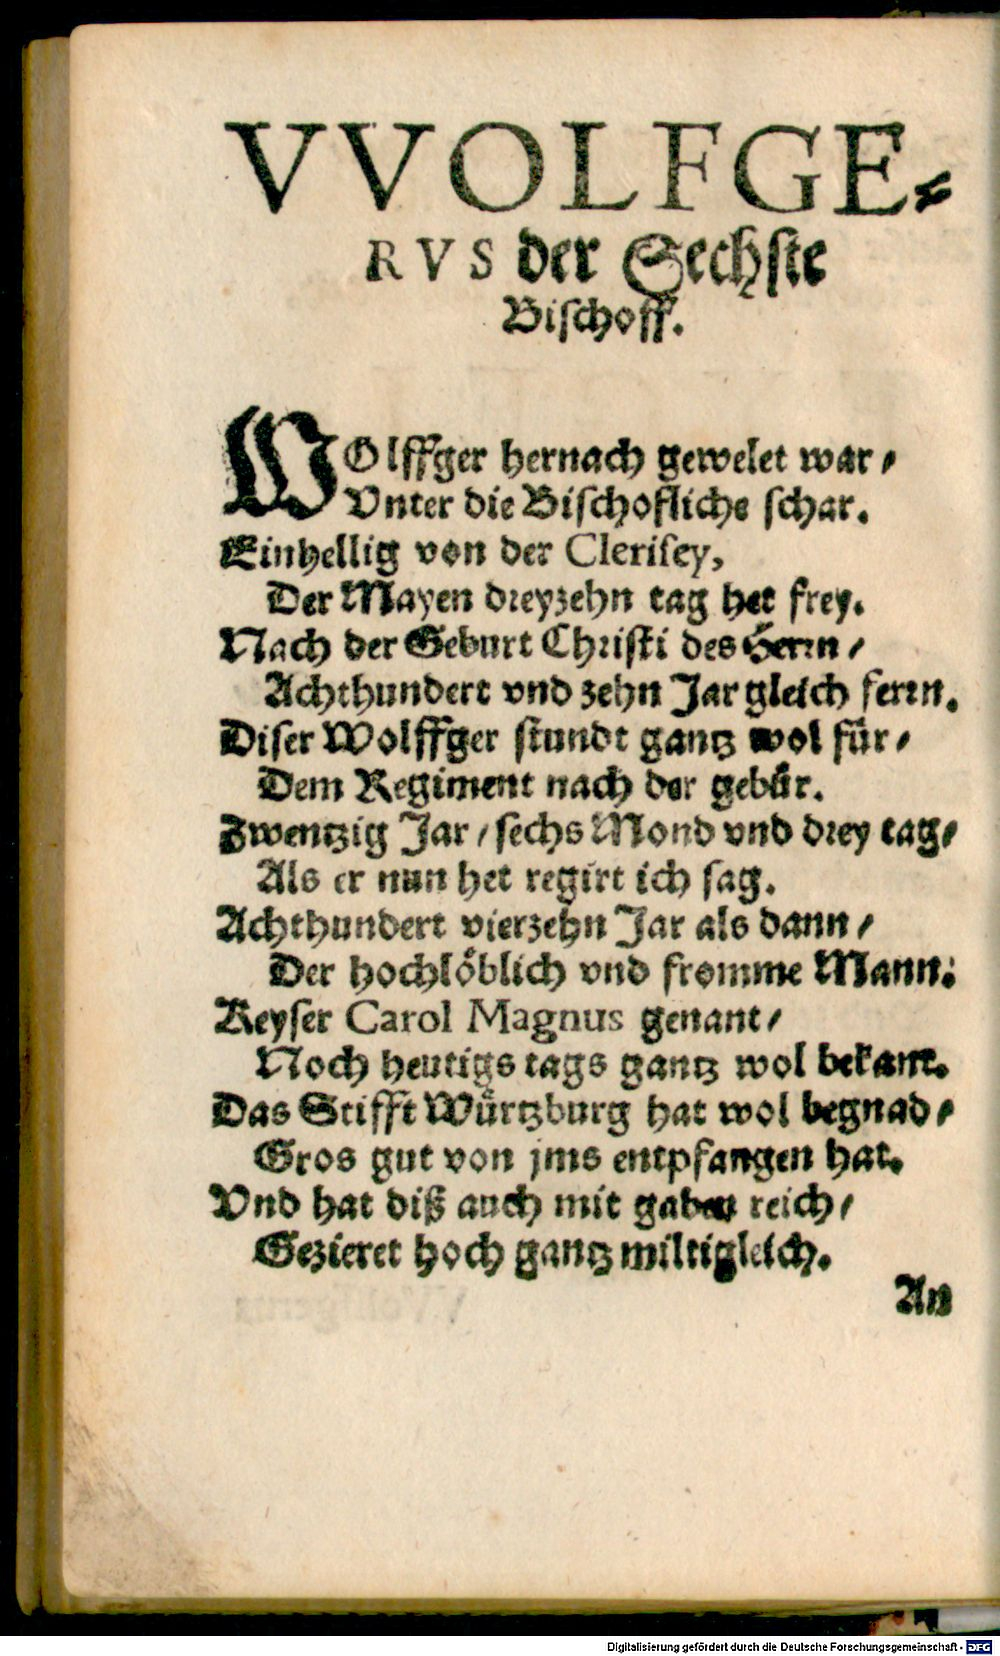 VVOLFGE⸗
RVS der Sechste
Bischoff.
WOlffger hernach gewelet war /
Vnter die Bischofliche schar.
Einhellig von der Clerisey,
Der Mayen dreyzehn tag het frey.
Nach der Geburt Christi des Herrn /
Achthundert vnd zehn Jar gleich ferrn.
Diser Wolffger stundt gantz wol für /
Dem Regiment nach der gebür.
Zwentzig Jar / sechs Mond vnd drey tag /
Als er nun het regirt ich sag.
Achthundert vierzehn Jar als dann /
Der hochlöblich vnd fromme Mann:
Keyser Carol Magnus genant /
Noch heutigs tags gantz wol bekant.
Das Stifft Würtzburg hat wol begnad /
Gros gut von jms entpfangen hat.
Vnd hat diß auch mit gaben reich /
Gezieret hoch gantz miltigleich.
An
Digitalisierung gefördert durch die Deutsche Forschungsgemeinschaft - DFG